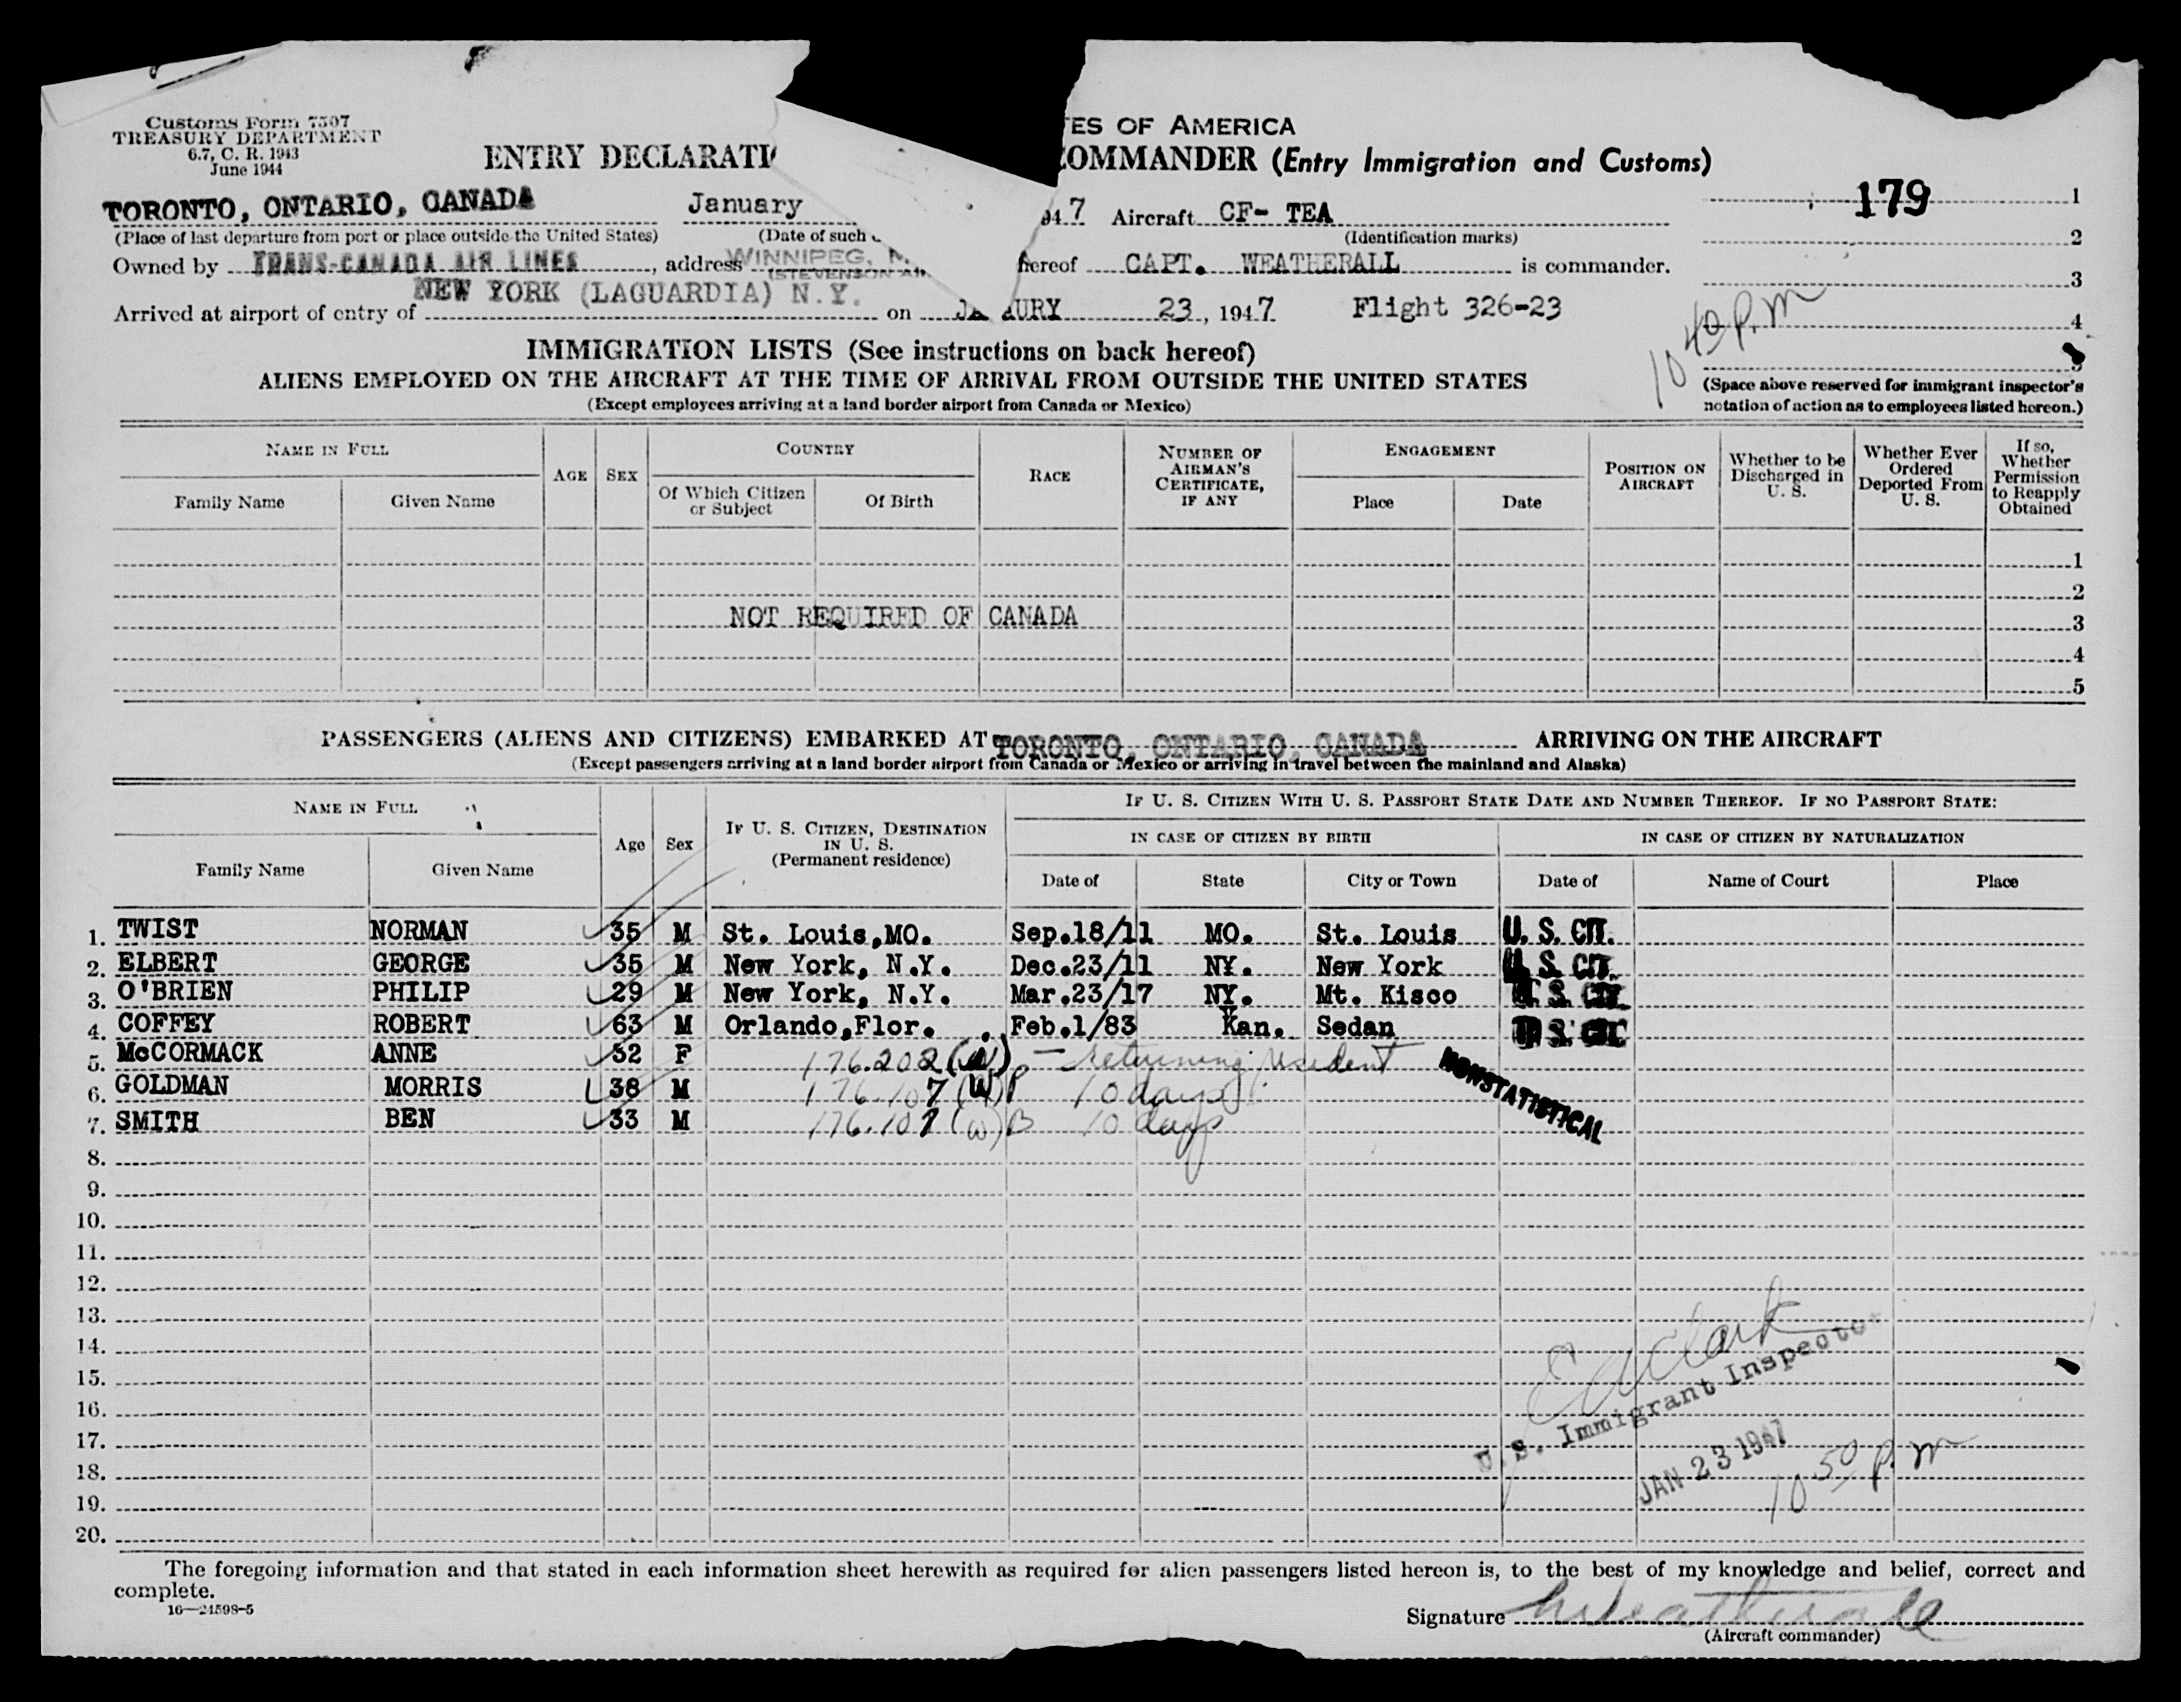 Customs Form 7507
TREASURY DEPARTMENT
6.7, C. R. 1943
June 1944
TES OF AMERICA
ENTRY DECLARATI COMMANDER (Entry Immigration and Customs)
179 1
TORONTO, ONTARIO, CANADA January 947 Aircraft CF- TEA
(Place of last departure from port or place outside the United States) (Date of such (Identification marks)
2
Owned by TRANS-CANADA AIR LINES, address WINNIPEG, M. hereof CAPT. WEATHERALL is commander.
(STEVENSON AI
3
Arrived at airport of entry of NEW YORK (LAGUARDIA) N.Y. on JA URY 23, 1947 Flight 326-23
4
10 40 P.M
5
IMMIGRATION LISTS (See instructions on back hereof)
ALIENS EMPLOYED ON THE AIRCRAFT AT THE TIME OF ARRIVAL FROM OUTSIDE THE UNITED STATES
(Except employees arriving at a land border airport from Canada or Mexico)
(Space above reserved for immigrant inspector's
notation of action as to employees listed hereon.)
NAME IN FULL AGE SEX COUNTRY RACE NUMBER OF AIRMAN'S CERTIFICATE, IF ANY ENGAGEMENT POSITION ON AIRCRAFT Whether to be Discharged in U. S. Whether Ever Ordered Deported From U. S. If so, Whether Permission to Reapply Obtained
Family Name Given Name Of Which Citizen or Subject Of Birth Place Date
1
2
NOT REQUIRED OF CANADA 3
4
5
PASSENGERS (ALIENS AND CITIZENS) EMBARKED AT TORONTO, ONTARIO, CANADA ARRIVING ON THE AIRCRAFT
(Except passengers arriving at a land border airport from Canada or Mexico or arriving in travel between the mainland and Alaska)
NAME IN FULL Age Sex IF U. S. CITIZEN, DESTINATION IN U. S. (Permanent residence) IF U. S. CITIZEN WITH U. S. PASSPORT STATE DATE AND NUMBER THEREOF. IF NO PASSPORT STATE:
IN CASE OF CITIZEN BY BIRTH IN CASE OF CITIZEN BY NATURALIZATION
Family Name Given Name Date of State City or Town Date of Name of Court Place
1. TWIST NORMAN 35 M St. Louis,MO. Sep.18/11 MO. St. Louis U. S. CIT.
2. ELBERT GEORGE 35 M New York, N.Y. Dec.23/11 NY. New York U. S. CIT.
3. O'BRIEN PHILIP 29 M New York, N.Y. Mar.23/17 NY. Mt. Kisco U. S. CIT.
4. COFFEY ROBERT 63 M Orlando,Flor. Feb.1/83 Kan. Sedan U. S. CIT.
5. McCORMACK ANNE 52 F 176.202 (W) - returning resident
6. GOLDMAN MORRIS 38 M 176.107 (W) P 10 days
7. SMITH BEN 33 M 176.107 (W) B 10 days
NONSTATISTICAL
8.
9.
10.
11.
12.
13.
14.
15.
16.
17.
18.
19.
20.
E A Clark
U. S. Immigrant Inspector
JAN 23 1947
10 50 P.M
The foregoing information and that stated in each information sheet herewith as required for alien passengers listed hereon is, to the best of my knowledge and belief, correct and
complete.
16—24598-5
Signature Weatherall
(Aircraft commander)